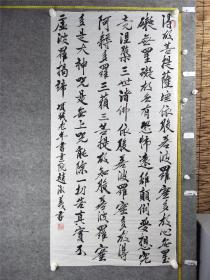 得故菩提薩埵依般若波羅蜜多故心無罣
礙無罣礙故無有恐怖遠離顛倒夢想究
竟涅槃三世諸佛依般若波羅蜜多故得
阿耨多羅三藐三菩提故知般若波羅蜜
多是大神咒是無上咒能除一切苦真實不
虛波羅揭諦 老年書畫院趙書